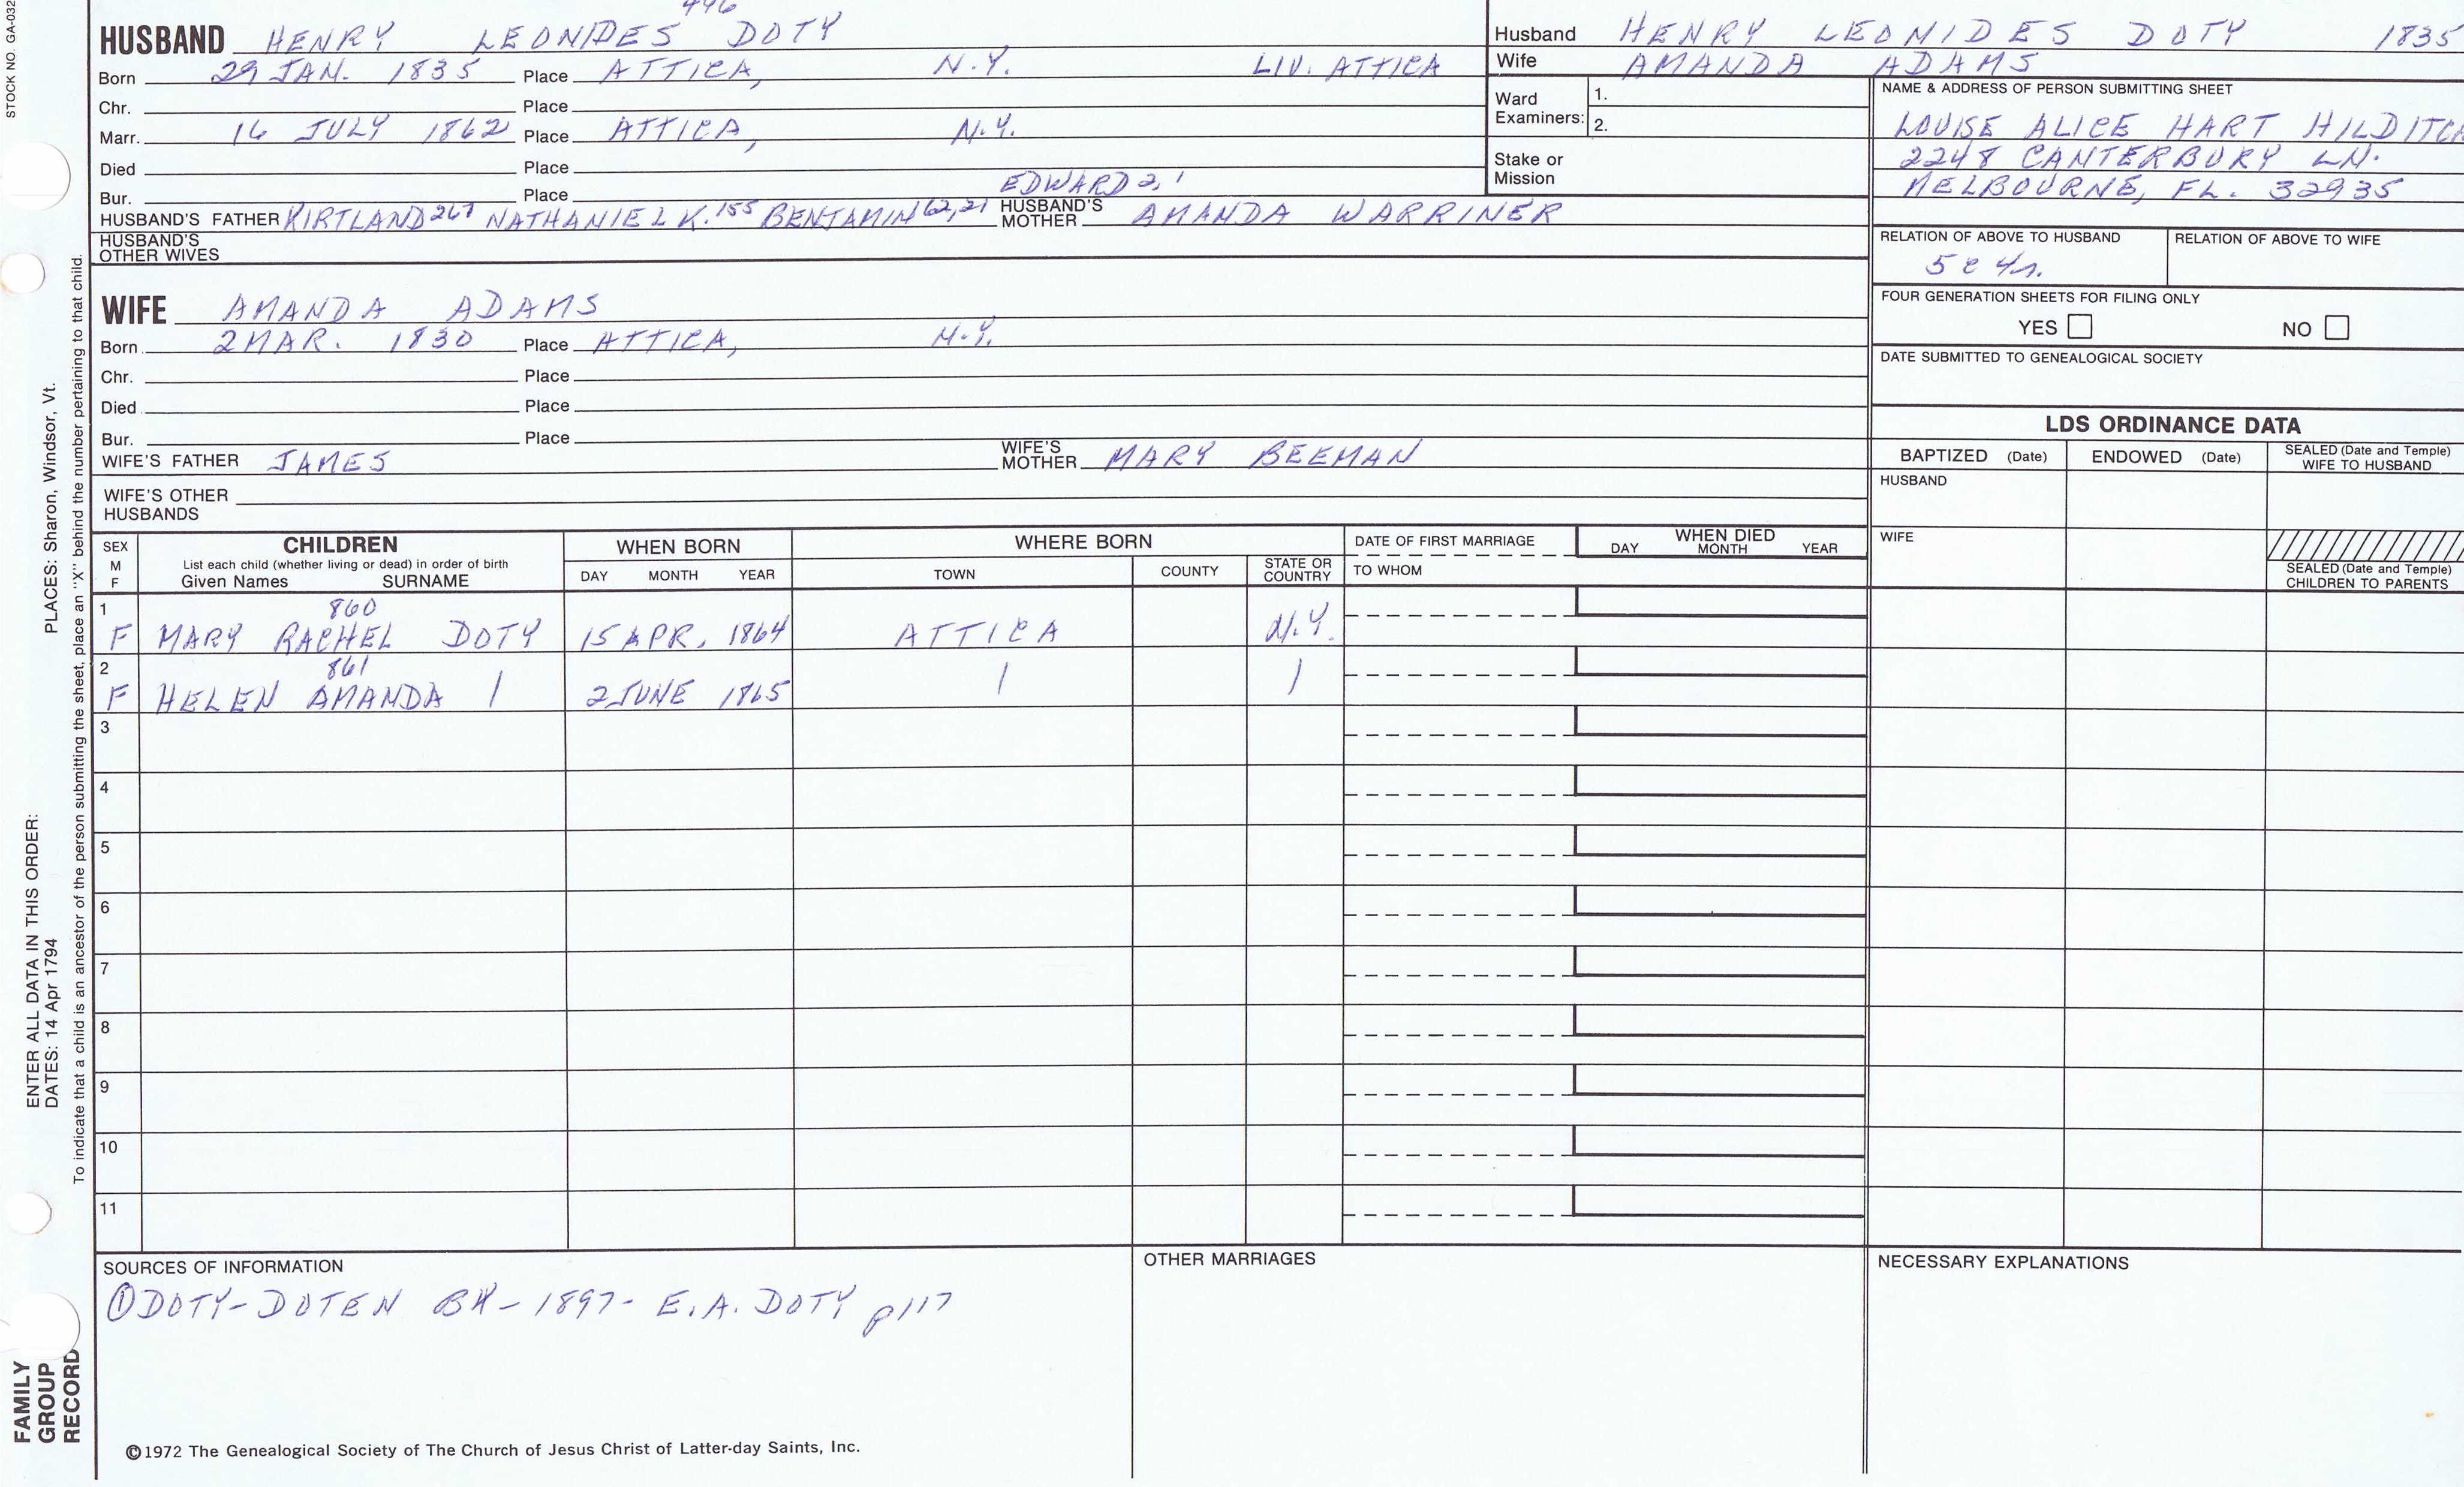 STOCK NO. GA-032
446
HUSBAND HENRY LEONIDES DOTY
Born 29 JAN. 1835 Place ATTICA, N.Y. LIV. ATTICA
Chr. Place
Marr. 16 JULY 1862 Place ATTICA, N.Y.
Died Place
Bur. Place EDWARD 2, 1
HUSBAND'S FATHER KIRTLAND 267 NATHANIEL K. 155 BENJAMIN 62, 21 HUSBAND'S MOTHER AMANDA WARRINER
HUSBAND'S OTHER WIVES
Husband HENRY LEONIDES DOTY 1835
Wife AMANDA ADAMS
Ward Examiners: 1.
2.
Stake or Mission
NAME & ADDRESS OF PERSON SUBMITTING SHEET
LOUISE ALICE HART HILDITCH
2248 CANTERBURY LN.
MELBOURNE, FL. 32935
RELATION OF ABOVE TO HUSBAND RELATION OF ABOVE TO WIFE
5 C 4r.
FOUR GENERATION SHEETS FOR FILING ONLY
YES NO
DATE SUBMITTED TO GENEALOGICAL SOCIETY
WIFE AMANDA ADAMS
Born 2 MAR. 1830 Place ATTICA, N.Y.
Chr. Place
Died Place
Bur. Place
WIFE'S FATHER JAMES WIFE'S MOTHER MARY BEEMAN
WIFE'S OTHER HUSBANDS
LDS ORDINANCE DATA
BAPTIZED (Date) ENDOWED (Date) SEALED (Date and Temple) WIFE TO HUSBAND
HUSBAND
WIFE
SEALED (Date and Temple) CHILDREN TO PARENTS
SEX M F CHILDREN WHEN BORN WHERE BORN DATE OF FIRST MARRIAGE WHEN DIED
List each child (whether living or dead) in order of birth
Given Names SURNAME DAY MONTH YEAR TOWN COUNTY STATE OR COUNTRY TO WHOM DAY MONTH YEAR
1 860
F MARY RACHEL DOTY 15 APR. 1864 ATTICA N.Y.
2 861
F HELEN AMANDA | 2 JUNE 1865 | |
3
4
5
6
7
8
9
10
11
SOURCES OF INFORMATION
① DOTY-DOTEN BK-1897- E.A. DOTY p117
OTHER MARRIAGES
NECESSARY EXPLANATIONS
©1972 The Genealogical Society of The Church of Jesus Christ of Latter-day Saints, Inc.
FAMILY GROUP RECORD
ENTER ALL DATA IN THIS ORDER:
DATES: 14 Apr 1794 PLACES: Sharon, Windsor, Vt.
To indicate that a child is an ancestor of the person submitting the sheet, place an "X" behind the number pertaining to that child.